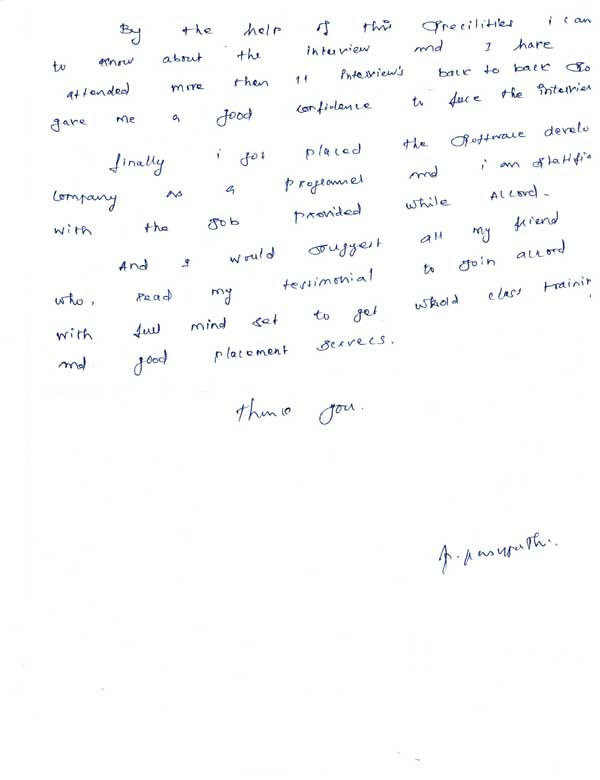 By the help of this Frecilities i can
to know about the interview and I have
attended more then 11 Interview's back to back So
gave me a good confidence to face the interview
finally i got placed the Software develo
company as a programer and i an statifie
with the Job provided while Accord.
And I would suggest all my friend
who, read my testimonial to Join accord
with full mind set to get whold class trainin
and good placement servecs.
thank you.